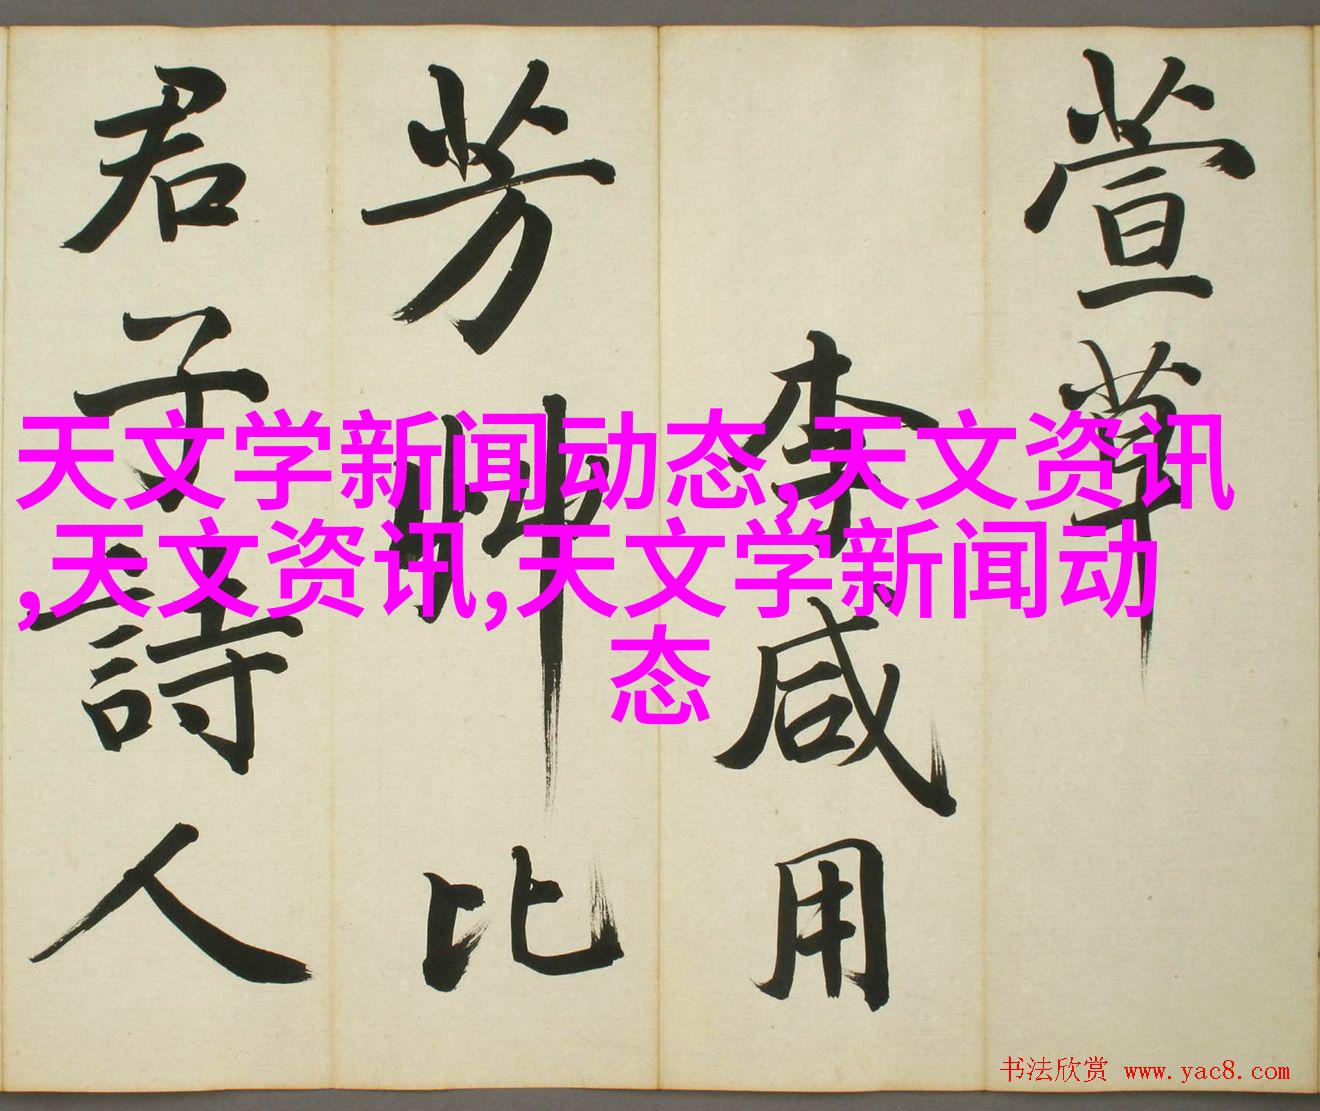 萱草
李咸用
芳艸比
君子詩人
天文学新闻动态,天文资讯
,天文资讯,天文学新闻动
态
书法欣赏 www.yac8.com